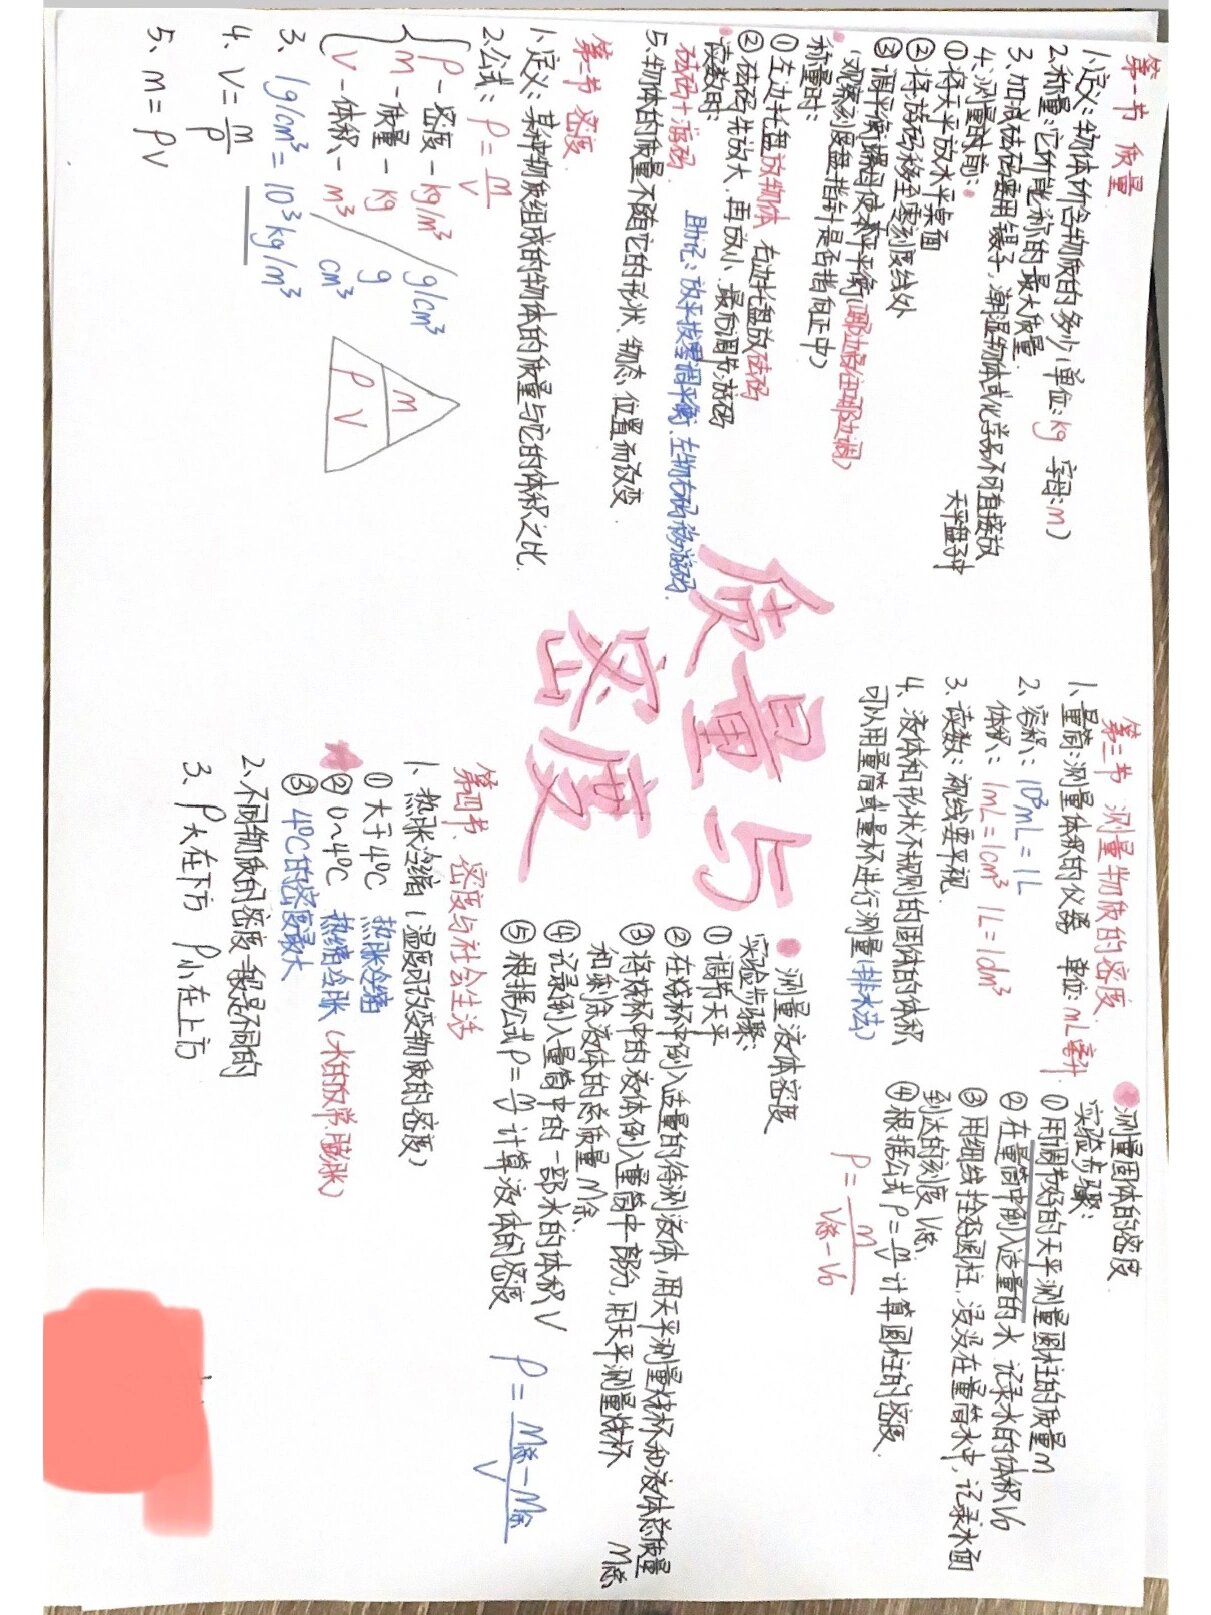 第一节 质量
1、定义：物体所含物质的多少（单位：kg 字母：m）
2、称量：它所能称的最大质量
3、加减砝码要用镊子，潮湿物体或化学品不可直接放
天平盘子中
4、测量时前：
①将天平放水平桌面
②将游码移至零刻度线处
③调平衡螺母使天平平衡（哪边高往哪边调）
（观察刻度盘指针是否指向正中）
称量时：
①左边托盘放物体 右边托盘放砝码
②砝码先放大，再放小、最后调节游码
读数时：
砝码+游码
助记：放平拨零调平衡、左物右码移游码.
5、物体的质量不随它的形状、物态、位置而改变.
第二节 密度
1、定义：某种物质组成的物体的质量与它的体积之比.
2、公式：ρ=m/V
ρ-密度-kg/m³ / g/cm³
m-质量-kg g
V-体积-m³ cm³
3、1g/cm³=10³kg/m³
4、V=m/ρ
5、m=ρV
m
ρ V
质量与
密度
第三节 测量物质的密度.
1、量筒：测量体积的仪器 单位：mL毫升
2、容积：10³mL=1L
体积：1mL=1cm³ 1L=1dm³
3、读数：视线要平视.
4、液体和形状不规则的固体的体积
可以用量筒或量杯进行测量（排水法）
测量固体的密度
实验步骤：
①用调节好的天平测量圆柱的质量m
②在量筒中倒入适量的水 记录水的体积V0
③用细线拴好圆柱，浸没在量筒水中，记录水面
到达的刻度V总
④根据公式ρ=m/V计算圆柱的密度.
ρ=m/V总-V0
测量液体密度
实验步骤：
①调节天平
②在烧杯中倒入适量的待测液体，用天平测量烧杯和液体总质量
m总
③将烧杯中的液体倒入量筒中一部分，用天平测量烧杯
和剩余液体的总质量m余
④记录倒入量筒中的一部水的体积V
⑤根据公式ρ=m/V计算液体的密度
ρ=m总-m余/V
第四节、密度与社会生活
1、热胀冷缩（温度可改变物质的密度）
①大于4℃ 热胀冷缩
②0~4℃ 热缩冷胀（水的反常膨胀）
③4℃的密度最大
2、不同物质的密度一般是不同的
3、ρ大在下方 ρ小在上方